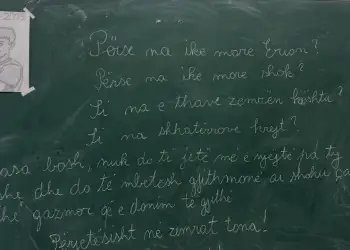 Përse na ike more Erion?
Përse na ike more shok?
Si na e thave zemrën kështu?
Si na shkatërrove krejt?
bosh, nuk do të jetë më e njejtë pa ty
dhe do të mbetesh gjithmonë ai shoku
gazmor që e donim të gjithë
Përjetësisht në zemrat tona!